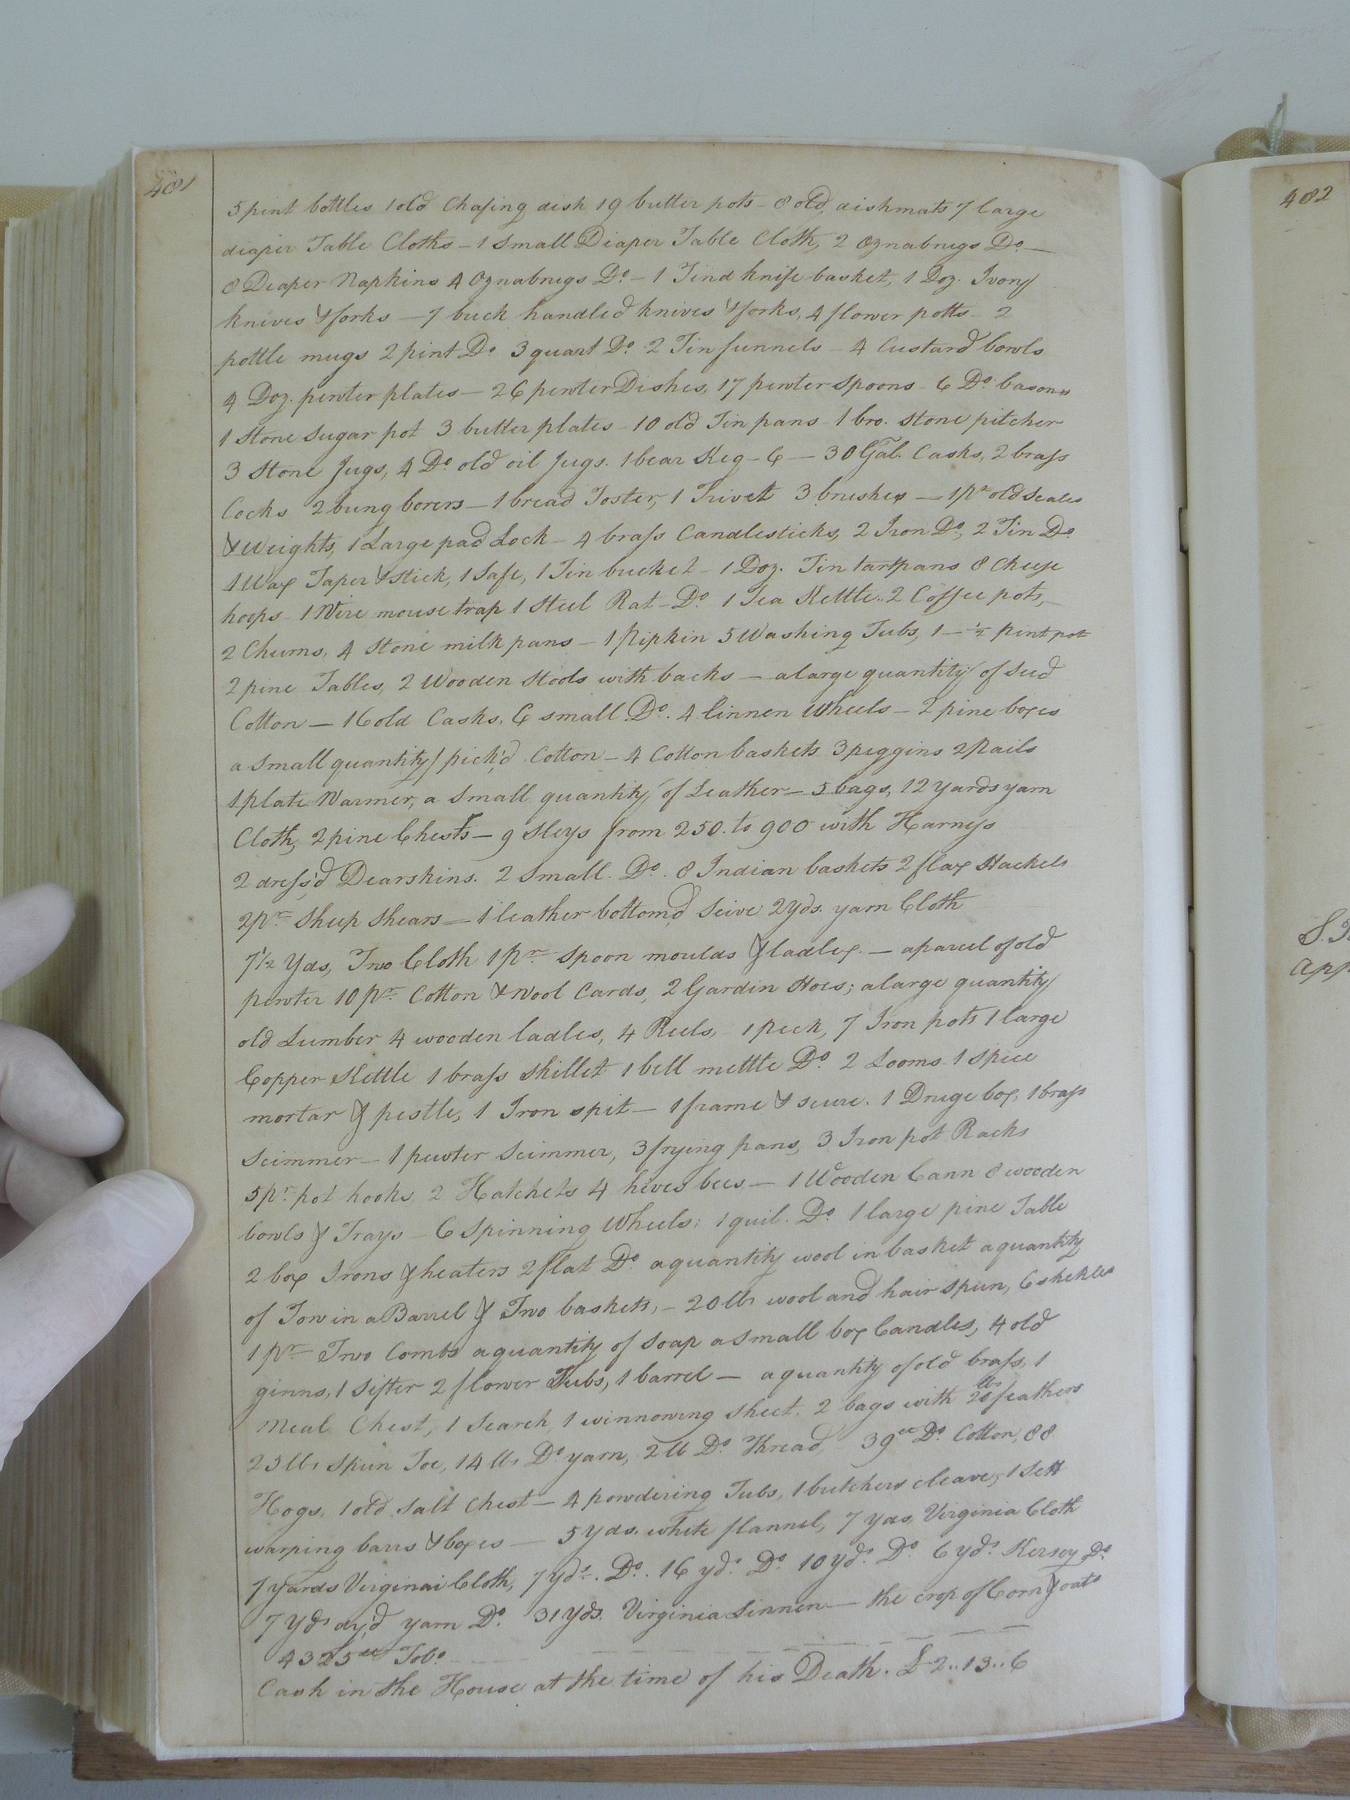 481
5 pint bottles 1 old Chafing dish 19 butter pots - 8 old dishmats 7 large
diaper Table Cloths - 1 Small Diaper Table Cloth, 2 Oznabrugs Do. -
8 Deaper Napkins 4 Oznabrugs Do. - 1 Tind knife basket, 1 Doz. Ivory
knives & forks - 7 buck handled knives & forks, 4 flower potts - 2
pottle mugs 2 pint Do 3 quart Do. 2 Tin funnels - 4 Custard bowls
4 Doz. pewter plates - 26 pewter Dishes, 17 pewter spoons - 6 Do. basons
1 Stone Sugar pot 3 butter plates - 10 old Tin pans - 1 bro. stone pitcher
3 Stone Jugs, 4 Do old oil Jugs. 1 bear Keg - 6 - 30 Gal. Casks, 2 brass
Cocks 2 bung borers - 1 bread Toster, 1 Trivet 3 brushes - 1 pr. old Scales
& Weights, 1 Large pad Lock - 4 brass Candlesticks, 2 Iron Do, 2 Tin Do
1 Wax Taper & stick, 1 Safe, 1 Tin bucket - 1 Doz. Tin tartpans 8 Cheese
hoops - 1 Wire mouse trap 1 Steel Rat - Do. 1 Tea Kettle. 2 Coffee pots,
2 Churns, 4 Stone milk pans - 1 Pipkin 5 Washing Tubs, 1 - ½ pint pot
2 pine Tables, 2 Wooden Stools with backs - a large quantity of Seed
Cotton - 16 old Casks, 6 small Do. 4 linnen Wheels - 2 pine boxes
a Small quantity pick'd Cotton - 4 Cotton baskets 3 peggins 2 Pails
1 plate Warmer, a Small quantity of Leather - 5 bags, 12 yards yarn
Cloth, 2 pine Chests - 9 Sleys from 250. to 900 with Harness
2 dress'd Dearskins. 2 Small. Do. 8 Indian baskets 2 flax Hackels
2 pr. Sheep Shears - 1 leather bottomd Seive 2 yds. yarn Cloth
7½ Yds, Two Cloth 1 pr. Spoon moulds & ladles. - a parcel of old
pewter 10 pr. Cotton & Wool Cards, 2 Gardin Hoes; a large quantity
old Lumber 4 wooden ladles, 4 Reels, - 1 Peck, 7 Iron pots 1 large
Copper Kettle 1 brass Skillet 1 bell mettle Do. 2 Looms 1 Spice
mortar & pestle, 1 Iron spit - 1 frame & scure. 1 Druge box, 1 brass
Scimmer - 1 pewter Scimmer, 3 frying pans, 3 Iron pot Racks
5 pr. pot hooks 2 Hatchets 4 hives bees - 1 Wooden Cann 8 wooden
bowls & Trays - 6 Spinning Wheels; 1 quil. Do. 1 large pine Table
2 box Irons & heaters 2 flat Do. a quantity wool in basket a quantity
of Tow in a Barrel & Two baskets, - 20 lbs wool and hair Spun, 6 skekles
1 pr. Two Combs a quantity of Soap a Small box Candles, 4 old
ginns, 1 Sifter 2 flower Tubs, 1 barrel - a quantity of old brass, 1
Meal Chest, 1 Search, 1 winnowing sheet. 2 bags with 20 lbs feathers
23 lbs Spun Toe, 14 lbs Do yarn, 2 lb Do. Thread, 39 Do. Cotton, 88
Hogs, 1 old Salt Chest - 4 powdering Tubs, 1 butchers cleaver, 1 Sett
warping barrs & boxes - 5 yds. white flannel, 7 yds, Virginia Cloth
7 yards Virginai Cloth, 7 yds. Do. 16 yds. Do. 10 yds. Do. 6 yds. Kersey Do.
7 Yds dy,d yarn Do. 31 yds. Virginia Linnen - the crop of Corn & oats
4325 Tob.
Cash in the House at the time of his Death. £ 2..13..6
482
App